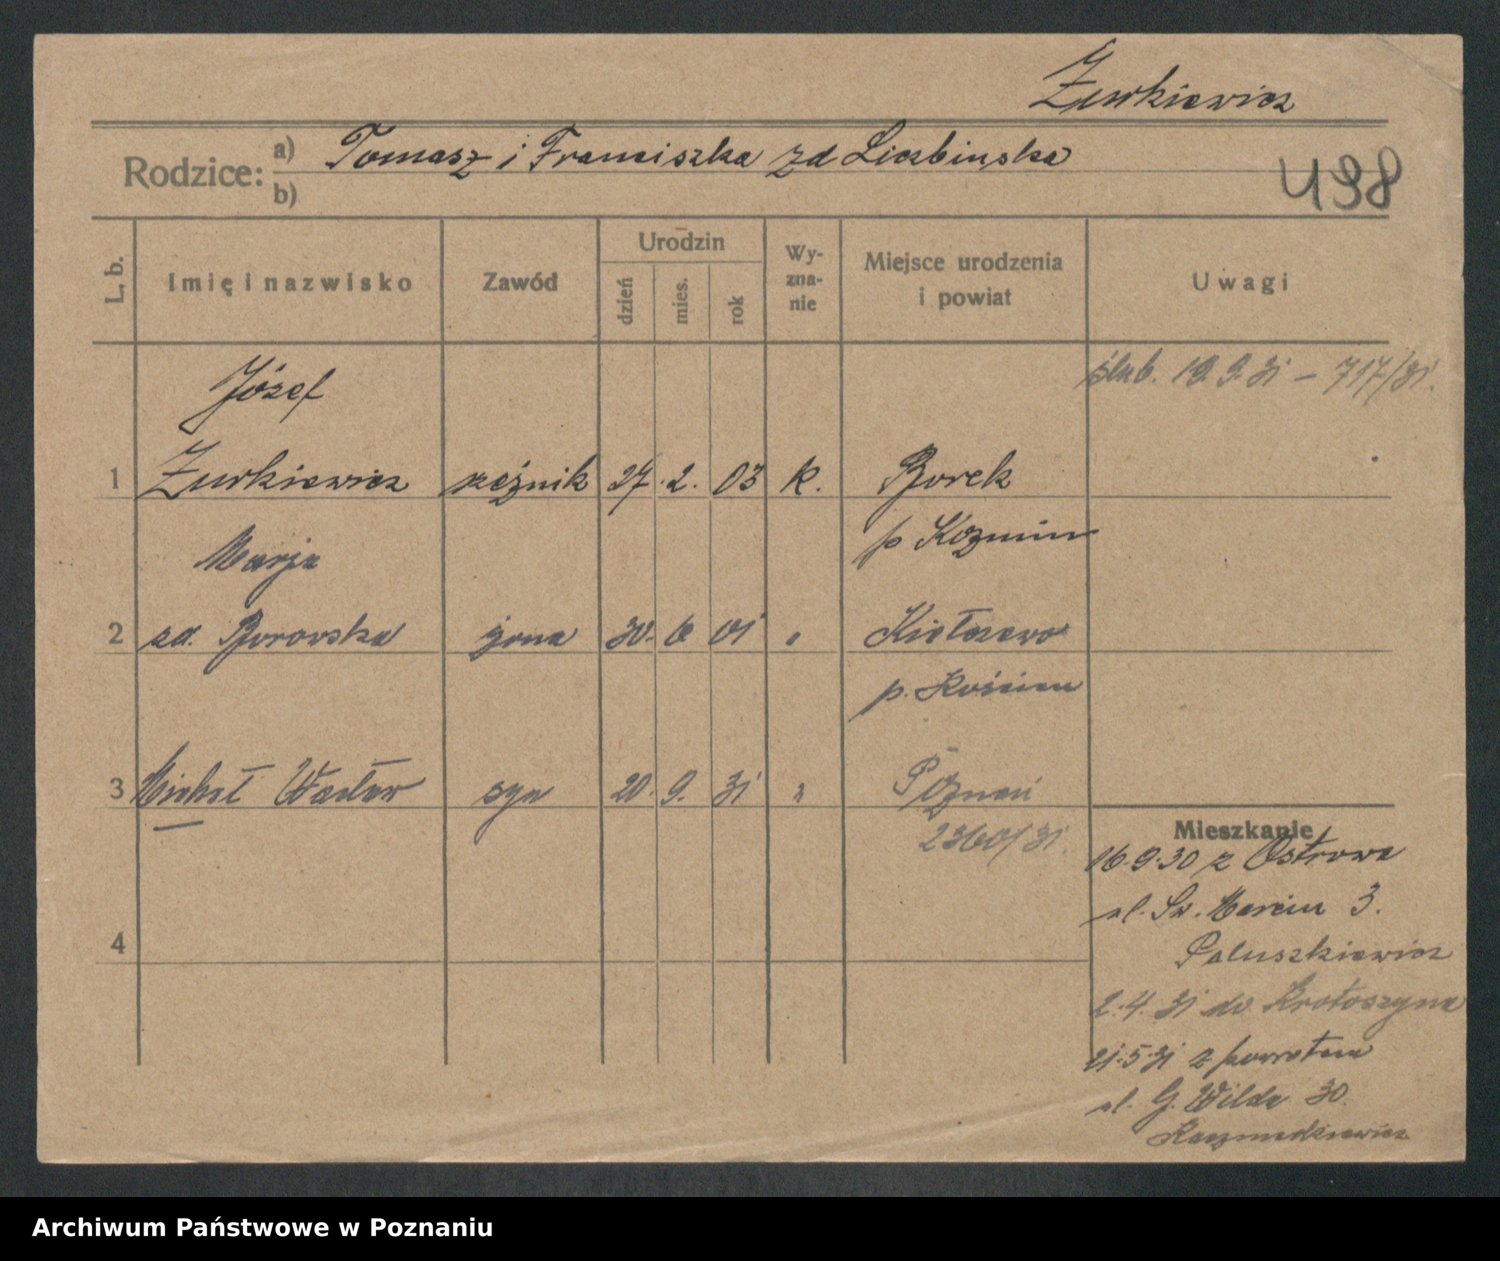 Żurkiewicz
Rodzice: a) Tomasz i Franciszka z d Liczbińska
b)
498
L. b.
Imię i nazwisko
Zawód
Urodzin
dzień
mies.
rok
Wy-
zna-
nie
Miejsce urodzenia
i powiat
Uwagi
Józef
ślub. 19.9.31 – 717/31.
1 Żurkiewicz rzeźnik 27. 2. 03 k. Borek
p Kozmin
Marja
2 zd. Borowska żona 30. 6 01 " Kiełczewo
p. Kościan
3 Michał Wacław syn 20. 9. 31 " Poznań
2360/31.
4
Mieszkanie
16.9.30 z Ostrowa
ul. Św. Marcin 3.
Paluszkiewicz
2.4.31 do Krotoszyna
21.5.31 z powrotem
ul. G. Wilda 30.
Kaczmarkiewicz
Archiwum Państwowe w Poznaniu